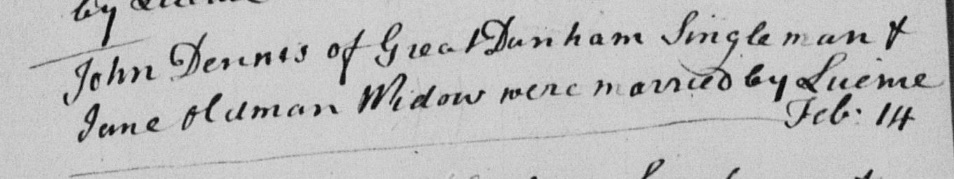 by Licence
John Dennis of Great Dunham Singleman &
Jane Oldman Widow were married by Licence
Feb: 14